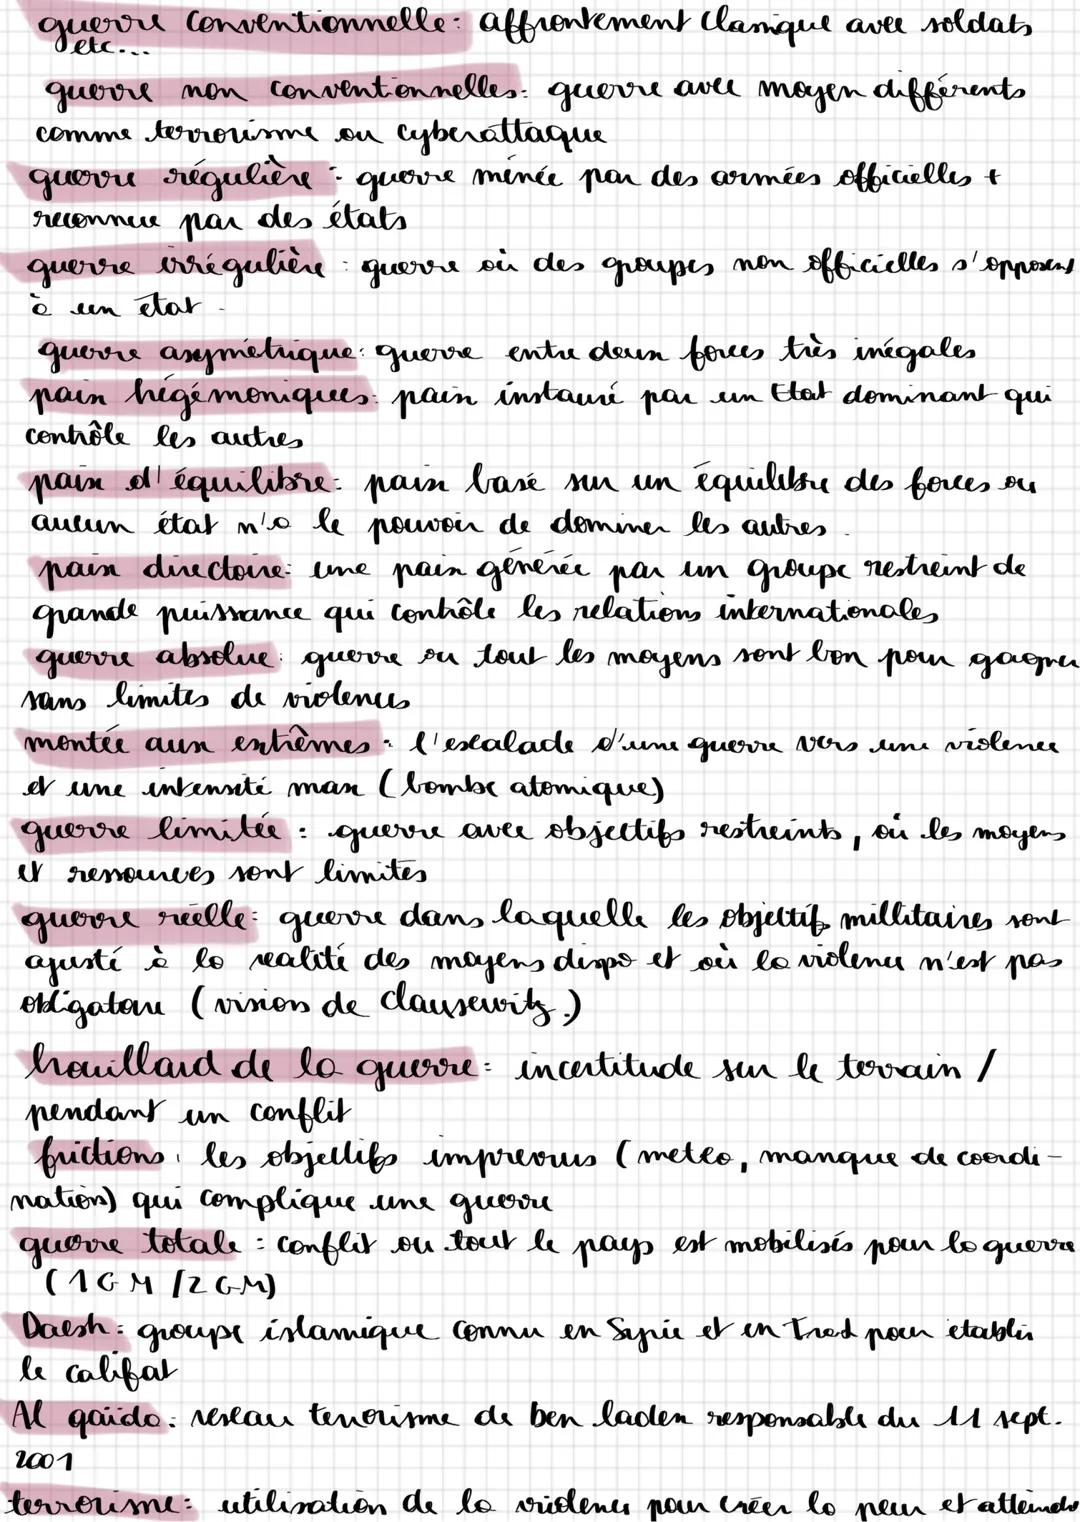 guerre conventionnelle : affrontement classique avec soldats
etc...
guerre non conventionnelles : guerre avec moyen différents
comme terrorisme ou cyberattaque
guerre régulière : guerre menée par des armées officielles +
reconnue par des états
guerre irrégulière : guerre où des groupes non officielles s'opposent
à un état.
guerre asymétrique : guerre entre deux forces très inégales
paix hégémoniques : paix instauré par un Etat dominant qui
contrôle les autres
paix d'équilibre : paix basé sur un équilibre des forces ou
aucun état n'a le pouvoir de dominer les autres.
paix directoire : une paix générée par un groupe restreint de
grande puissance qui contrôle les relations internationales
guerre absolue : guerre ou tout les moyens sont bon pour gagner
sans limites de violences
montée aux extrêmes : l'escalade d'une guerre vers une violence
et une intensité max (bombe atomique)
guerre limitée : guerre avec objectifs restreints, où les moyens
et ressources sont limités
guerre réelle : guerre dans laquelle les objectifs millitaires sont
ajusté à la réalité des moyens dispo et où la violence n'est pas
obligatoire (vision de Clausewitz.)
brouillard de la guerre : incertitude sur le terrain /
pendant un conflit
frictions : les objectifs imprévus (météo, manque de coordi-
nation) qui complique une guerre
guerre totale : conflit ou tout le pays est mobilisés pour la guerre
(1GM/2GM)
Daesh : groupe islamique connu en Syrie et en pour établir
le califat
Al qaïda : réseau terrorisme de ben laden responsable du 11 sept.
2001
terrorisme : utilisation de la violence pour créer la peur et atteindre